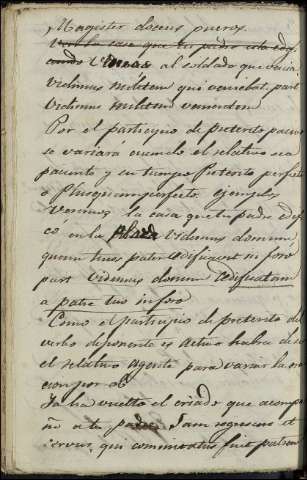 Magister docens pueros.
Ven la casa que tu padre esta edifi
cando Vimos al soldado que venia
vidimus militem qui veniebat, part
Vidimus militem venientem
Por el participio de preterito pasivo
se variará cuando el relativo sea
paciente y su tiempo Preterito perfecto
o Plusquamperfecto ejemplos
Veremos la casa que tu padre edifi
co en la Plaza Videmus domum
quam tuus pater ædificavit in foro
part videmus domum ædificatam
a patre tuo in foro
Como el participio de preterito de
verbo deponente es activo habra de ser
el relativo agente para variar la ora
cion por el
Ya ha vuelto el criado que acompa
ño a tu padre Jam regressus est
servus, qui comitatus fuit patrem